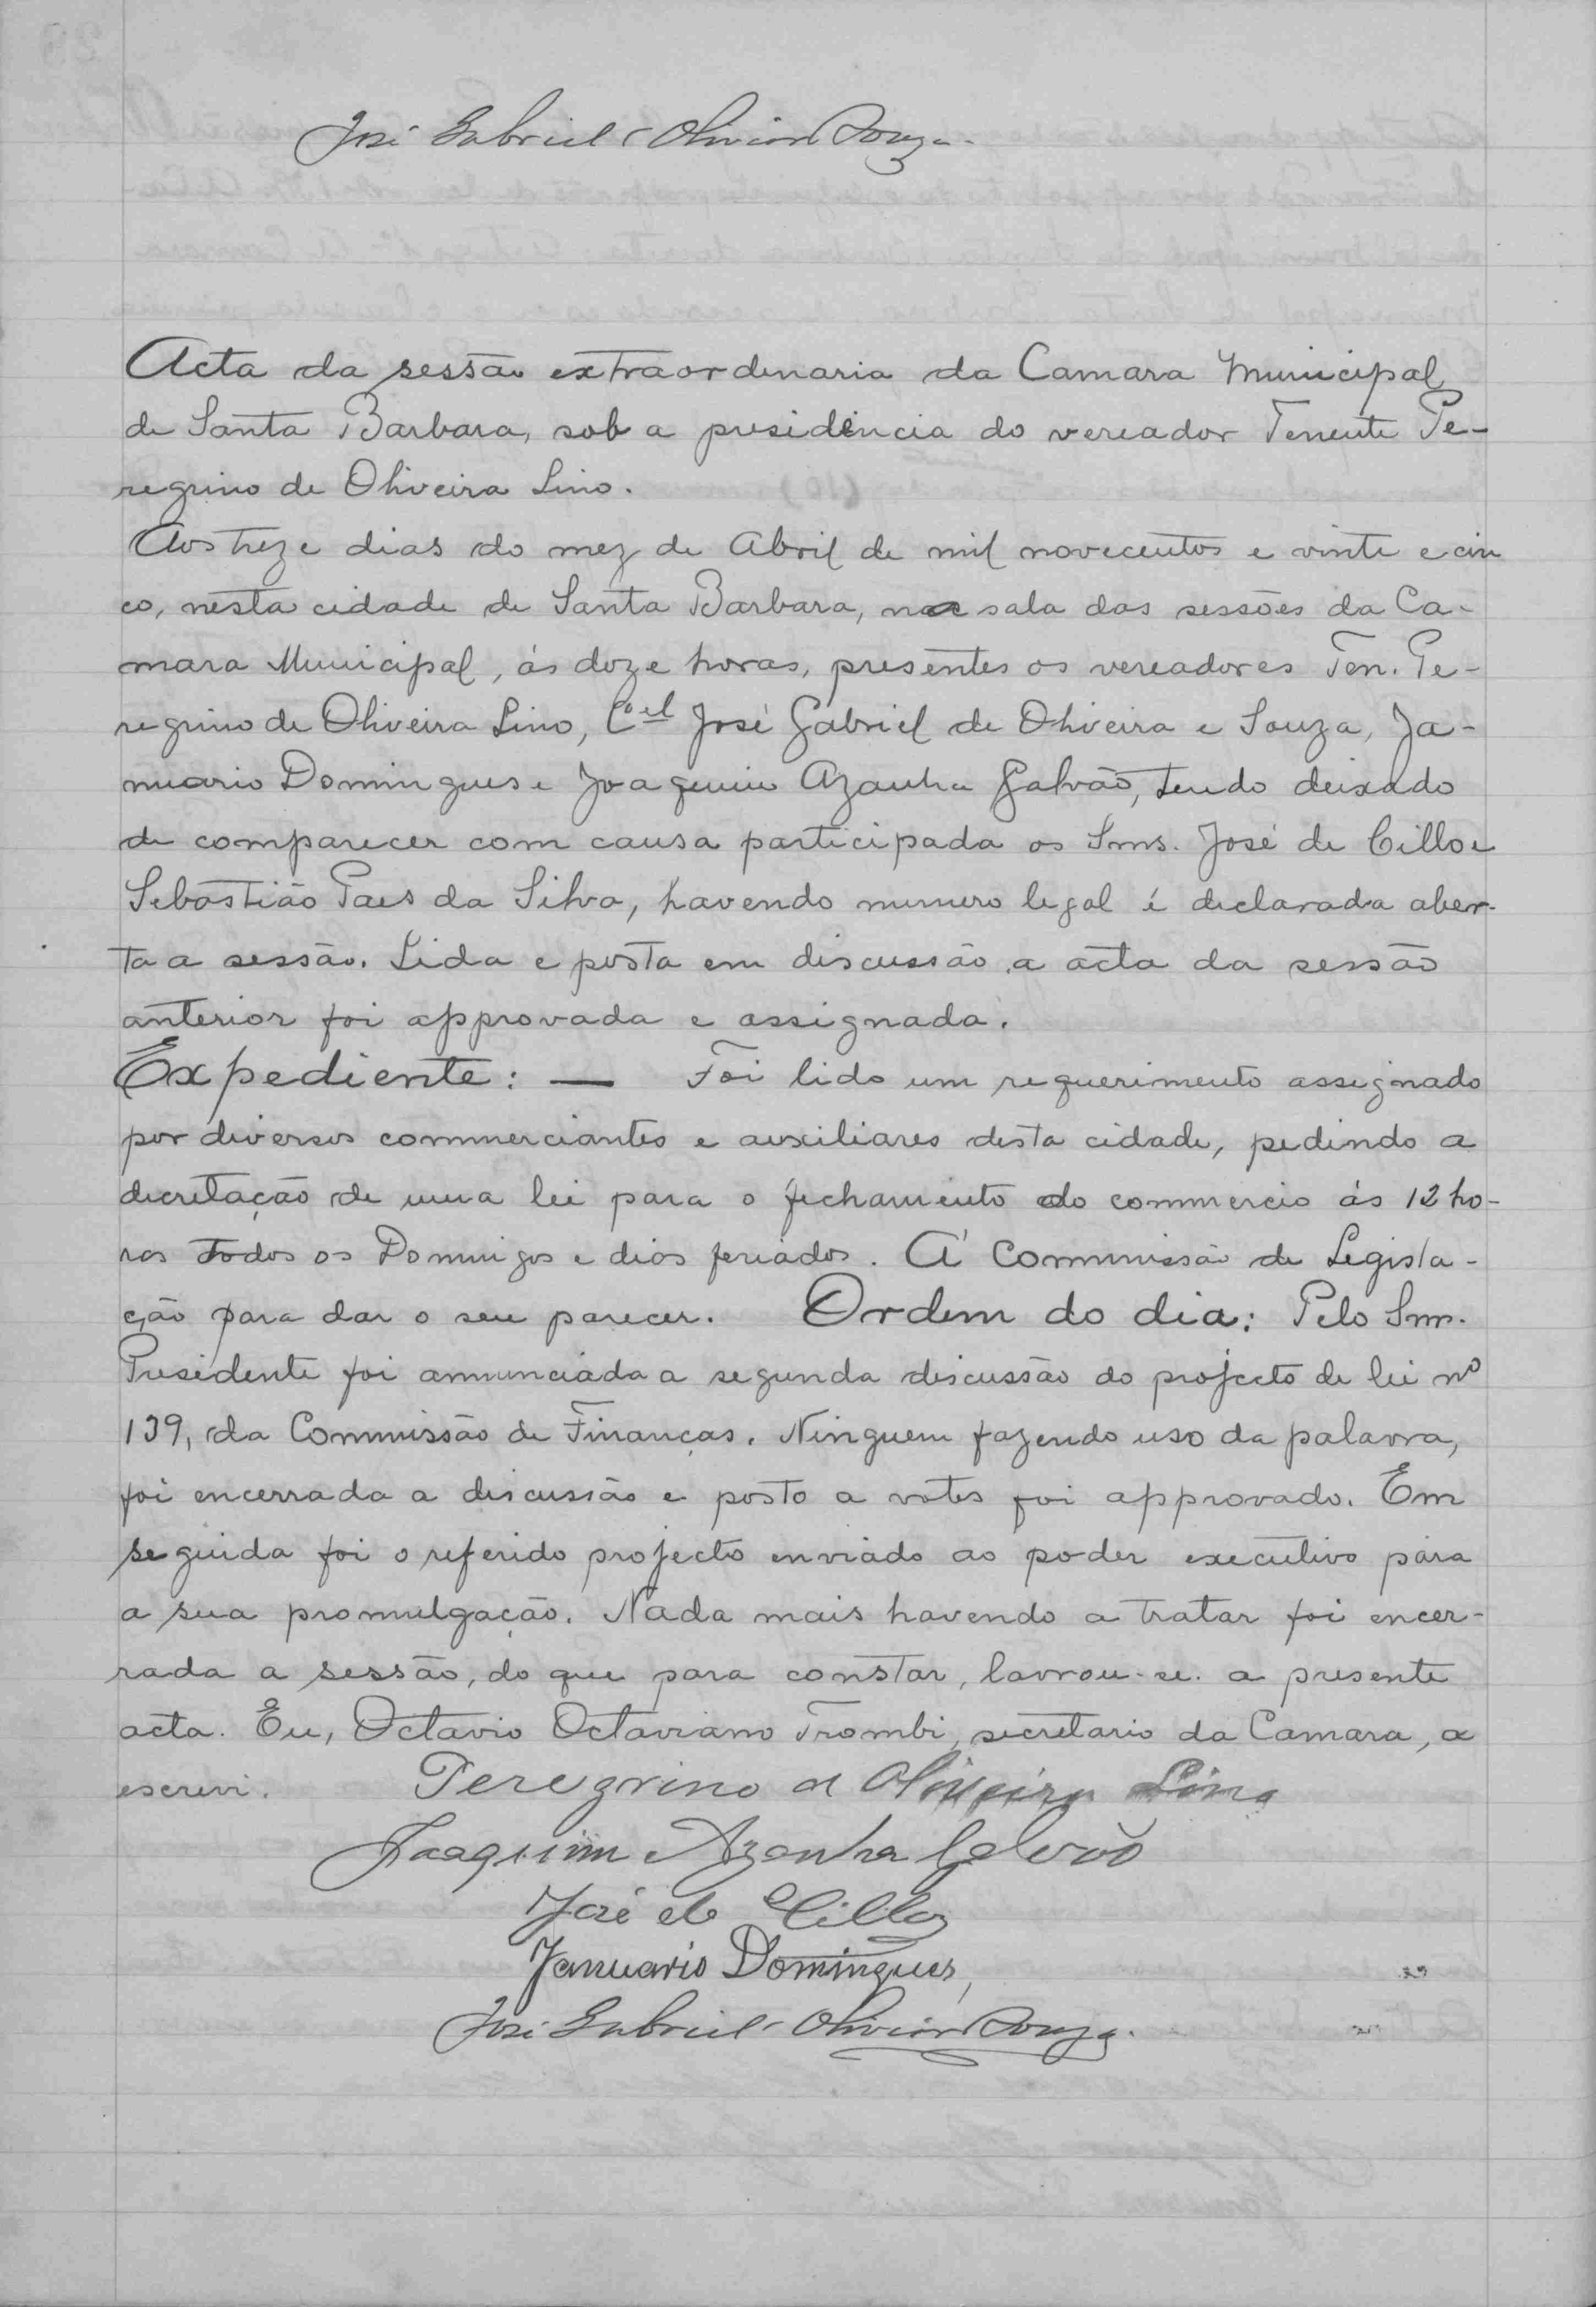 José Gabriel Oliveira Souza.
Acta da sessão extraordenaria da Camara Municipal
de Santa Barbara, sob a presidencia do vereador Tenente Pe-
regrino de Oliveira Lino.
Aos treze dias do mez de Abril de mil novecentos e vinte e cin
co, nesta cidade de Santa Barbara, na sala das sessões da Ca-
mara Municipal, ás doze horas, presentes os vereadores Ten. Pe-
regrino de Oliveira Lino, Cel José Gabriel de Oliveira e Souza, Ja-
nuario Domingues e Joaquim Azanha Galvão, tendo deixado
de comparecer com causa participada os Snrs. José de Cillo e
Sebastião Paes da Silva, havendo numero legal é declarada aber-
ta a sessão. Lida e posta em discussão a acta da sessão
anterior foi approvada e assignada.
Expediente: — Foi lido um requerimento assignado
por diversos commerciantes e auxiliares desta cidade, pedindo a
decretação de uma lei para o fechamento do commercio ás 12 ho-
ras todos os Domingos e dias feriados. Á Commissão de Legisla-
ção para dar o seu parecer. Ordem do dia: Pelo Snr.
Presidente foi annunciada a segunda discussão do projecto de lei nº
139, da Commissão de Finanças. Ninguem fazendo uso da palavra,
foi encerrada a discussão e posto a votos foi approvado. Em
seguida foi o referido projecto enviado ao poder executivo para
a sua promulgação. Nada mais havendo a tratar foi encer-
rada a sessão, do que para constar, lavrou-se a presente
acta. Eu, Octavio Octaviano Trombi, secretario da Camara, a
escrevi. Peregrino de Oliveira Lino
Joaquim Azanha Galvão
José de Cillo
Januario Domingues
José Gabriel Oliveira Souza.